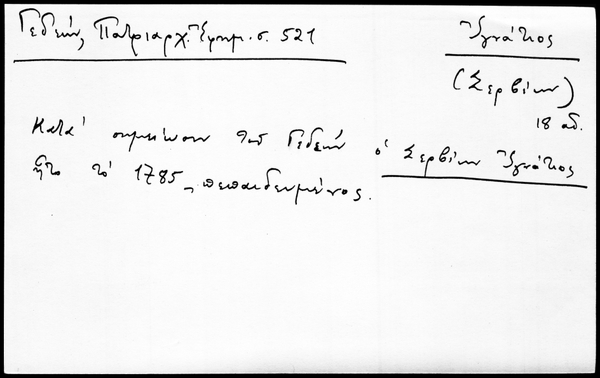 Γεδεών, Πατριαρχ. Ἐφημ. σ. 521
Ἰγνάτιος
(Σερβίων)
18 αἰ.
Κατά σημείωσιν τοῦ Γεδεών ὁ Σερβίων Ἰγνάτιος
ἦτο τό 1785 πεπαιδευμένος.